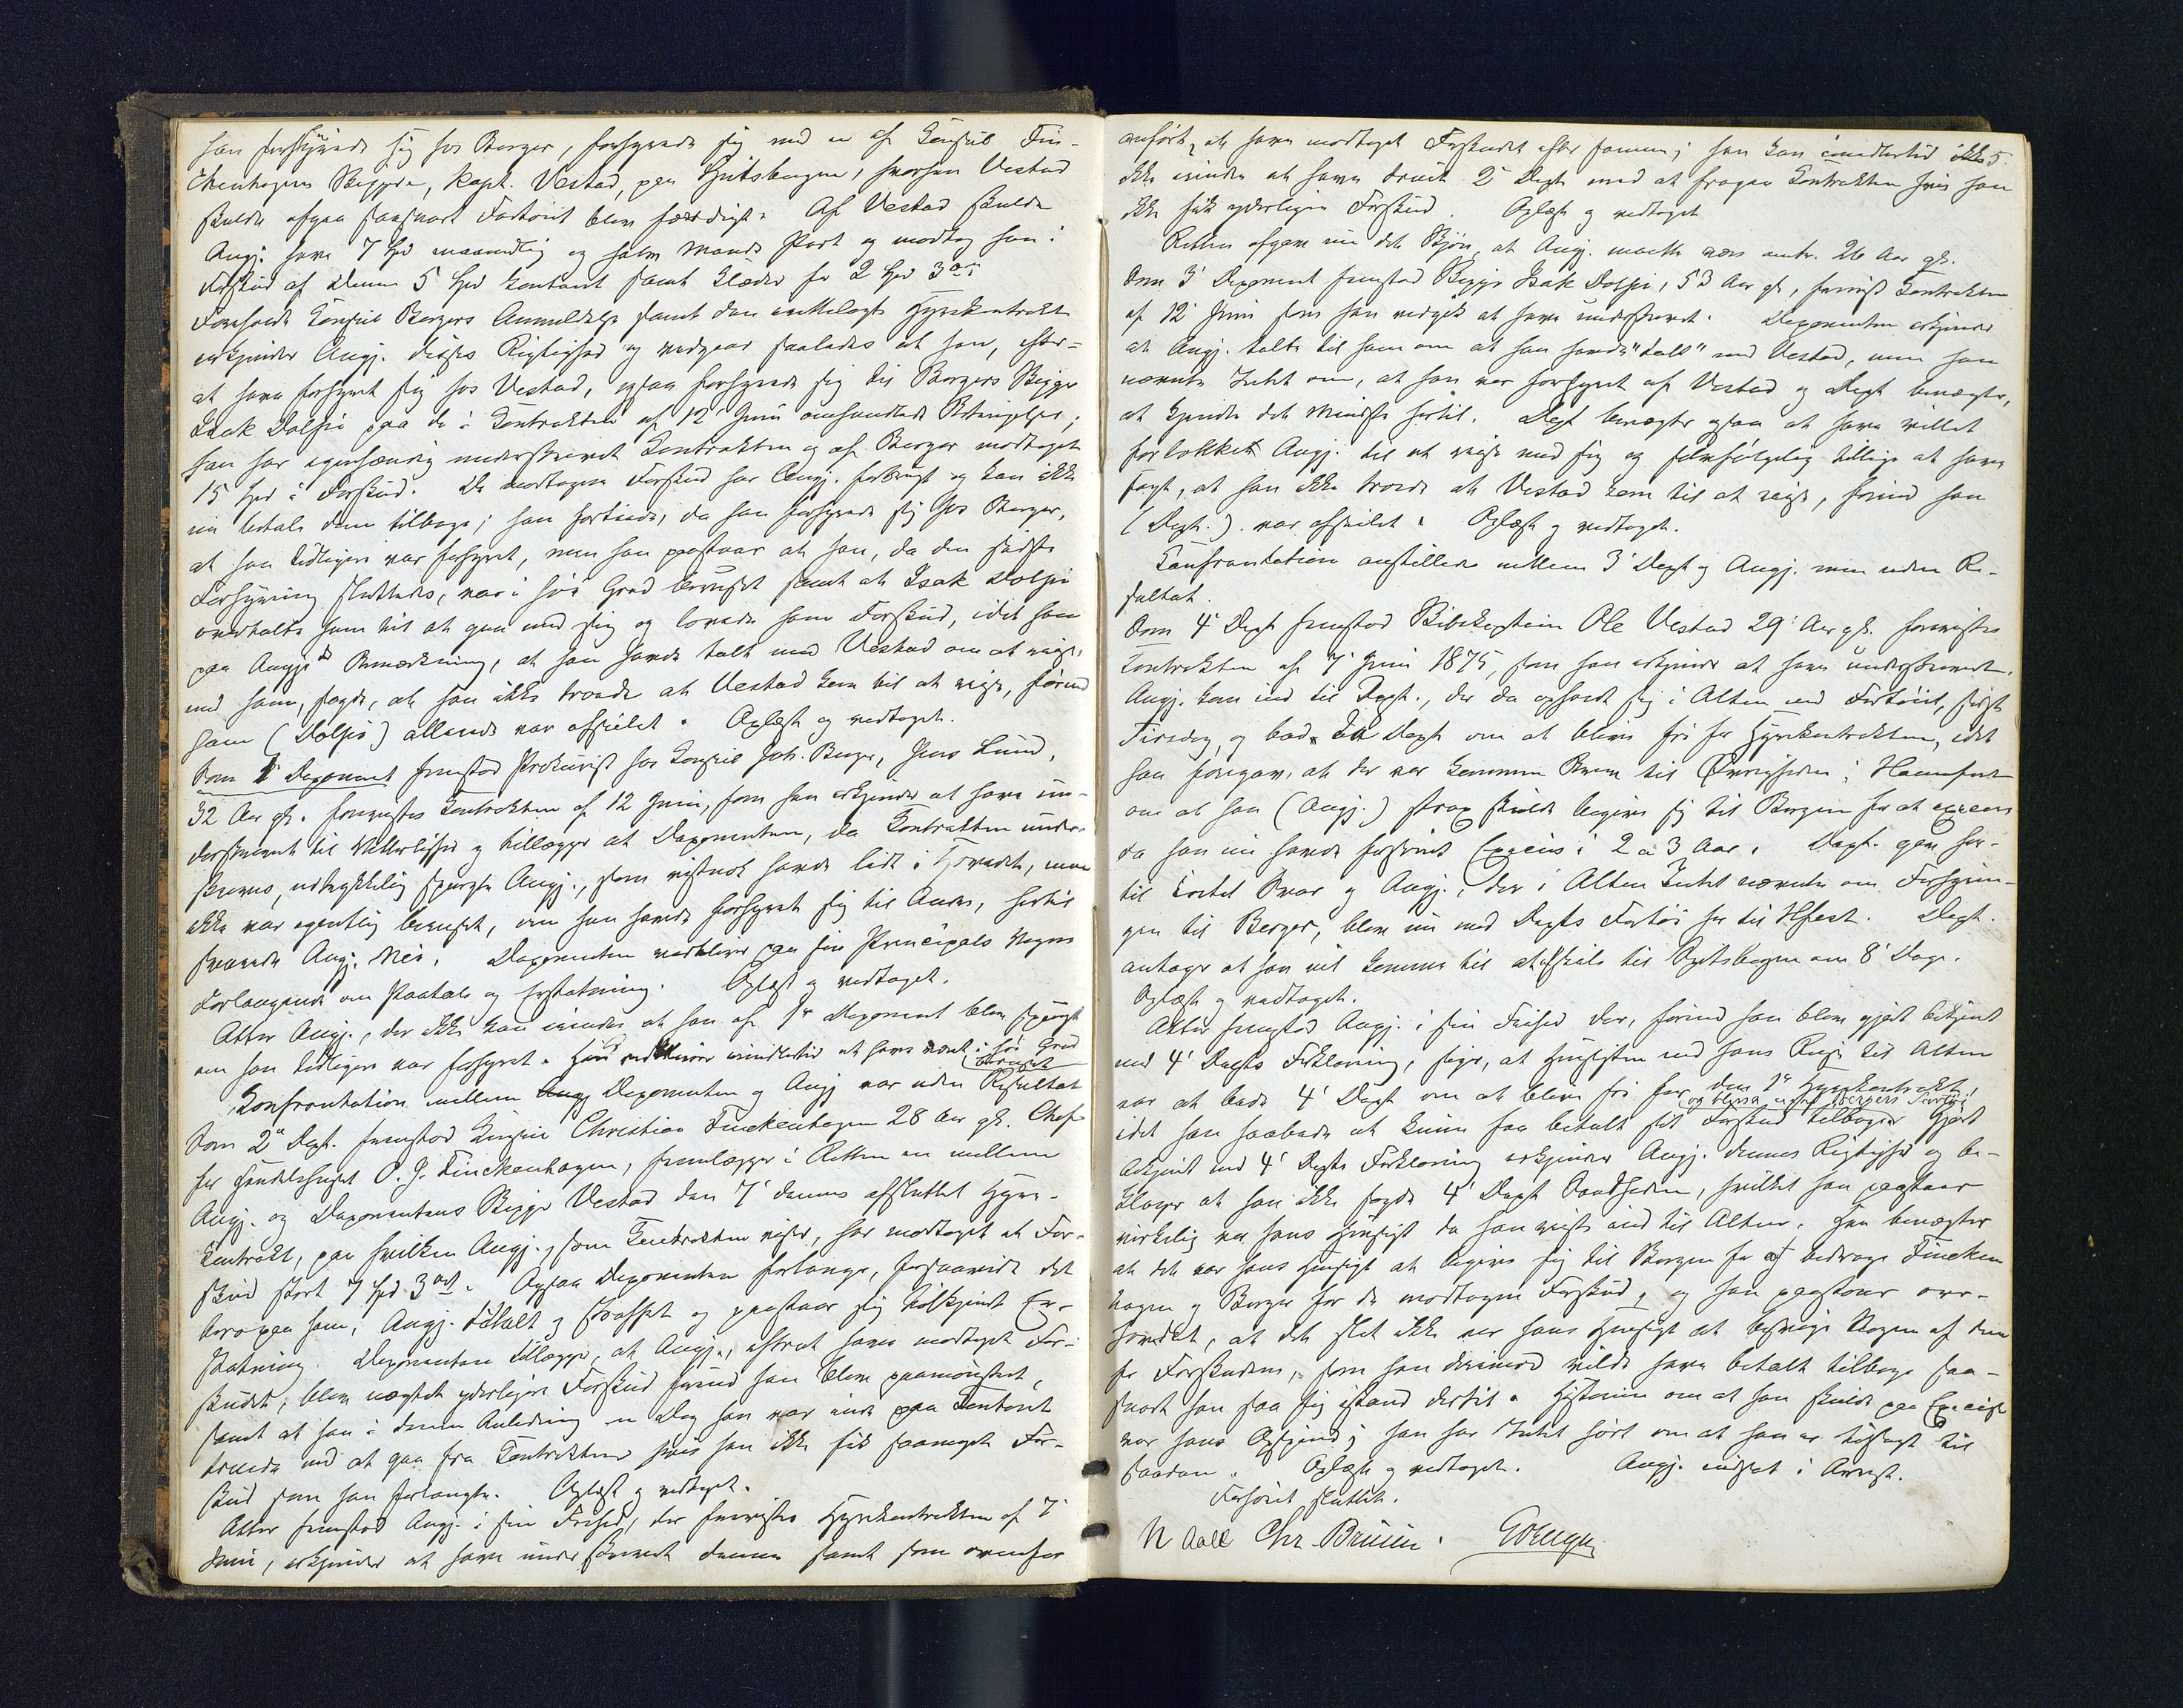 han forhyrede sig hos Berger, forhyrede sig med en af Konsul Fin-
ckenhagens Skippere, Kapt. Vestad, paa Spitsbergen, hvorhen Vestad
skulde afgaa saasnart Fartöiet blev færdigt. Af Vestad skulde
Angj. have 7 Spd maanedlig og halv Mands Part og modtog han i
Forskud af denne 5 Spd kontant samt Klæder for 2 Spd 3 ort
Foreholdt Konsul Bergers Anmeldelse samt den vedlagte Hyrekontrakt
erkjender Angj. disses Rigtighed og vedgaar saaledes at han, efter-
at have forhyret sig hos Vestad, ogsaa forhyrede sig til Bergers Skipper
Isak Dolpi paa de i Kontrakten af 12' Juni omhandlede Betingelser;
han har egenhændig underskrevet Kontrakten og af Berger modtaget
15 Spd i Forskud. De modtagne Forskud har Angj. forbrugt og kan ikke
nu betale dem tilbage; han fortiede, da han forhyrede sig hos Berger,
at han tidligere var forhyret, men han paastaar at han, da den sidste
Forhyring sluttedes, var i höi Grad beruset samt at Isak Dolpi
overtalte ham til at gaa med sig og lovede ham Forskud, idet han
paa Angjs Bemærkning, at han havde talt med Vestad om at reise
med ham, sagde, at han ikke troede at Vestad kom til at reise, förend
han (Dolpi) allerede var afseilet. Oplæst og vedtaget.
Som 1' Deponent fremstod Prokurist hos Konsul Joh. Berger, Jens Lund,
32 Aar gl. forevistes Kontrakten af 12 Juni, som han erkjender at have un-
derskrevet til Vitterlighed og tillægger at Deponenten, da Kontrakten under-
skreves, udtrykkelig spurgte Angj., som vistnok havde lidt i Hovedet, men
ikke var egentlig beruset, om han havde forhyret sig til Andre, hertil
svarede Angj. Nei. Deponenten vedblever paa sin Principals Vegne
Forlangende om Paatale og Erstatning. Oplæst og vedtaget.
Atter Angj., der ikke kan mindes at han af 1' Deponent blev spurgt
om han tidligere var forhyret. Han vedbliver imidlertid at have været i höi Grad
beruset
Konfrontation mellem Deponenten og Angj var uden Resultat
Som 2' Dept. fremstod Konsul Christian Finckenhagen 28 Aar gl. Chef
for Handelshuset O. J. Finckenhagen, fremlægger i Retten en mellem
Angj. og Deponentens Skipper Vestad den 7' dennes afsluttet Hyre-
kontrakt, paa hvilken Angj., som Kontrakten viser, har modtaget et For-
skud stort 7 Spd 3 ort. Ogsaa Deponenten forlanger, forsaavidt det
beror paa ham, Angj. tiltalt og straffet og paastaar sig tilkjendt Er-
statning. Deponenten tillægger, at Angj., efterat have modtaget For-
skudet, blev nægtet yderligere Forskud förend han blev paamönstret,
samt at han i denne Anledning en Dag han var inde paa Kontoret
truede med at gaa fra Kontrakten hvis han ikke fik saameget For-
skud som han forlangte. Oplæst og vedtaget.
Atter fremstod Angj. i sin Frihed, der forevistes Hyrekontrakten af 7'
Juni, erkjender at have underskrevet denne samt som ovenfor
anfört, at have modtaget Forskudet efter samme; han kan imidlertid ikke 5.
ikke mindes at have truet 2' Dept med at fragaa Kontrakten hvis han
ikke fik yderligere Forskud. Oplæst og vedtaget
Retten afgav nu det Skjön, at Angj. maatte være omtr. 26 Aar gl.
Som 3' Deponent fremstod Skipper Isak Dolpi, 53 Aar gl, forevist Kontrakten
af 12' Juni som han vedgik at have underskrevet. Deponenten erkjender
at Angj. talte til ham om at han havde "talt" med Vestad, men han
nævnte Intet om, at han var forhyret af Vestad og Dept benægter,
at kjende det Mindste hertil. Dept benægter ogsaa at have villet
forlokket Angj. til at reise med sig og selvfölgelig tillige at have
sagt, at han ikke troede at Vestad kom til at reise, förend han
(Dept.) var afseilet. Oplæst og vedtaget.
Konfrontation anstilledes mellem 3' Dept og Angj. men uden Re-
sultat.
Som 4' Dept fremstod Skibskaptein Ole Vestad 29' Aar gl. forevistes
Kontrakten af 7' Juni 1875, som han erkjender at have underskrevet.
Angj. kom ind til Dept., der da opholdt sig i Alten med Fartöiet, sidste
Tirsdag, og bad Dept om at blive fri for Hyrekontrakten, idet
han foregav, at der var kommen Brev til Övrigheden i Hammerfest
om at han (Angj.) strax skulde begive sig til Bergen for at exercere
da han nu havde forsömt Exercis i 2 a 3 Aar. Dept. gav her-
til kortet Svar og Angj., der i Alten Intet nævnte om Forhyrin-
gen til Berger, blev nu med Depts Fartöi her til Hfest. Dept.
antager at han vil komme til at afseile til Spitsbergen om 8' Dage.
Oplæst og vedtaget.
Atter fremstod Angj. i sin Frihed der, förend han blev gjort bekjent
med 4' Depts Forklaring, siger, at Hensigten med hans Reise til Alten
var at bede 4' Dept om at blive fri for den 1' Hyrekontrakt,
og blive med Bergers Fartöi
idet han haabede at kunne faa betalt sit Forskud tilbage. Gjort
bekjent med 4' Depts Forklaring erkjender Angj. dennes Rigtighed og be-
klager at han ikke sagde 4' Dept Sandheden, hvilket han paastaar
virkelig var hans Hensigt da han reiste ind til Alten. Han benægter
at det var hans Hensigt at begive sig til Bergen for at bedrage Fincken
hagen og Berger for de modtagne Forskud, og han paastaar over-
hovedet, at det slet ikke var hans Hensigt at besvige Nogen af dem
for Forskudene, som han derimod vilde have betalt tilbage saa-
snart han saa sig istand dertil. Historien om at han skulde paa Exercis
var hans Opspind; han har Intet hört om at han er tilsagt til
saadan. Oplæst og vedtaget. Angj. indsat i Arrest.
Forhöret sluttet.
N Aall Chr. Bruun.